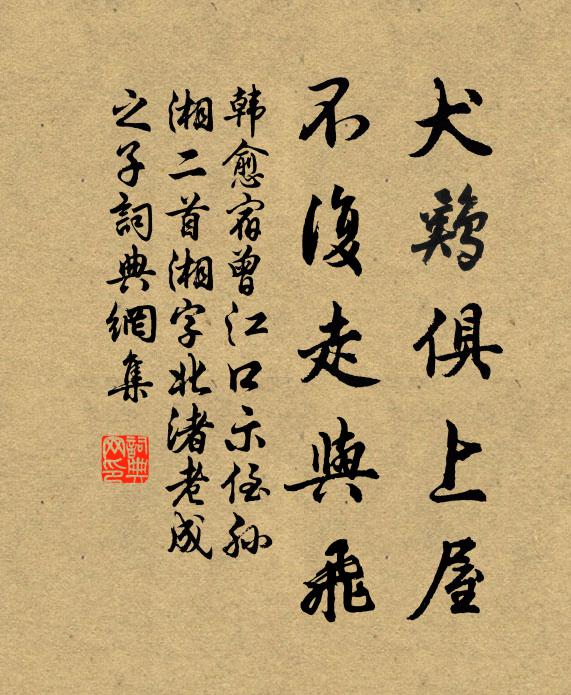 犬鷄俱上屋
不復走與飛
韩愈宿曾江口示侄孙
湘二首湘字北渚老成
之子詞典網集
詞典网印